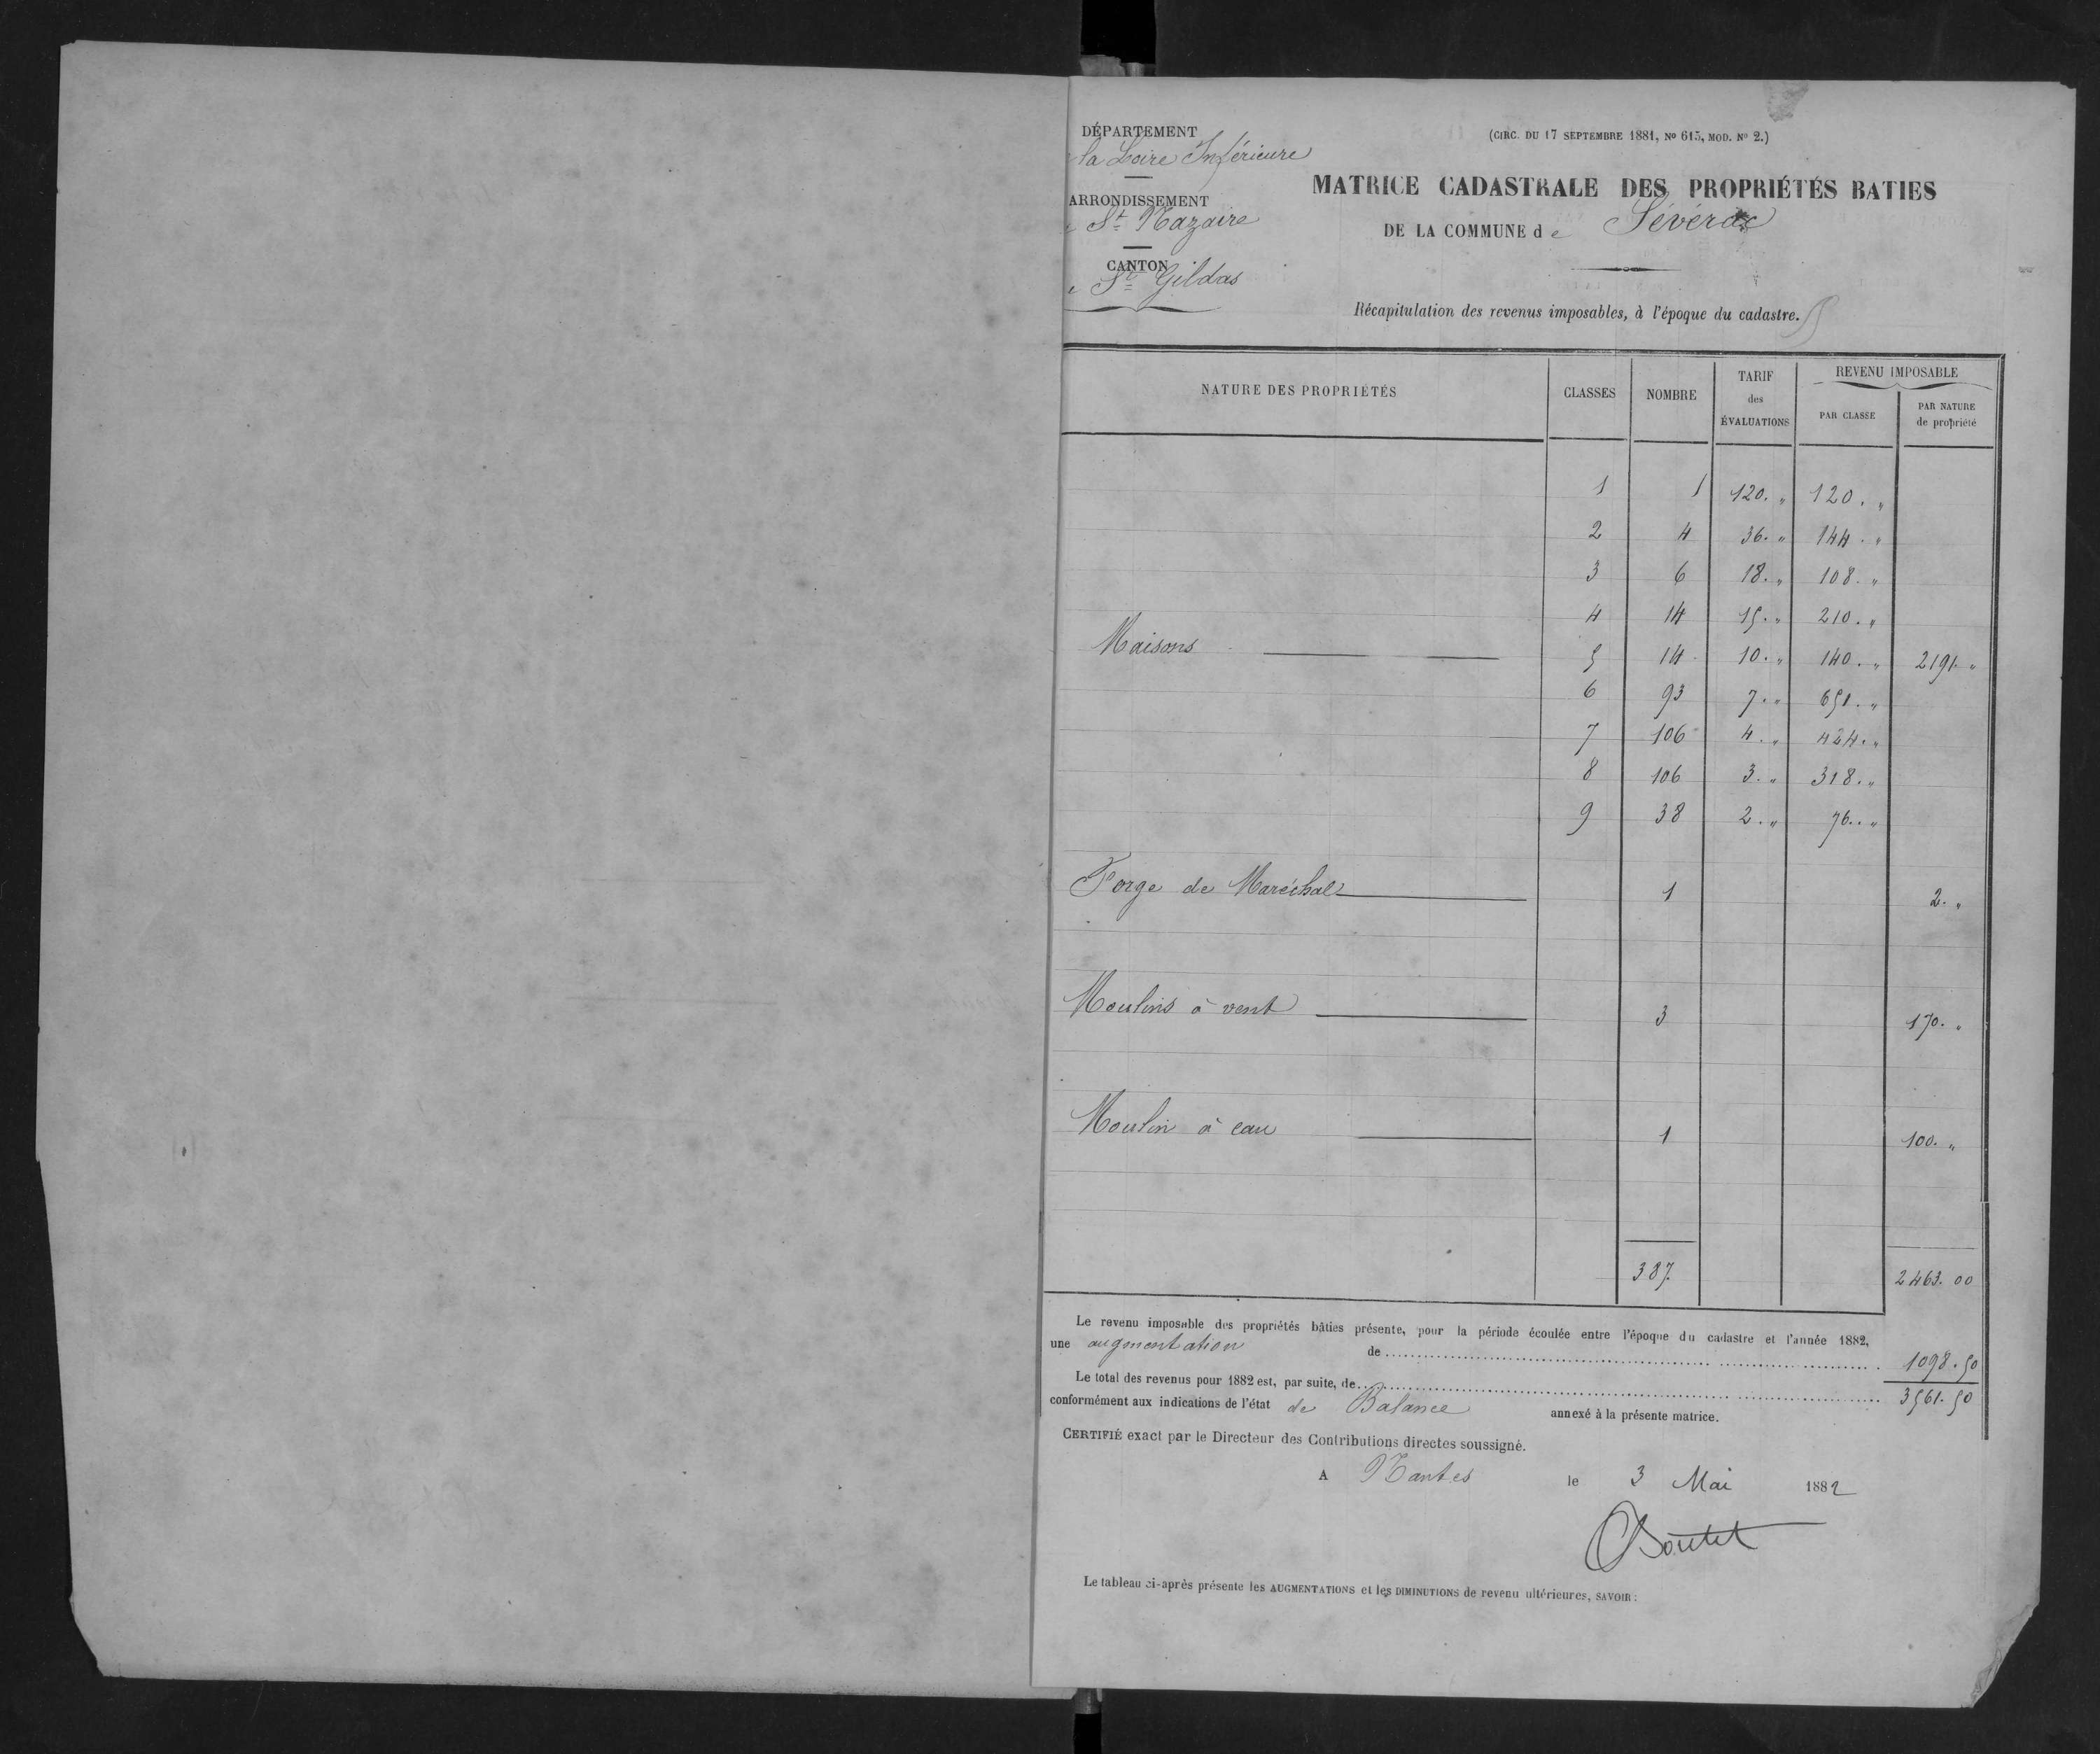 DÉPARTEMENT
la Loire Inférieure
ARRONDISSEMENT
St Nazaire
CANTON
St Gildas
(CIRC. DU 17 SEPTEMBRE 1881, No 615, MOD. No 2.)
MATRICE CADASTRALE DES PROPRIÉTÉS BATIES
DE LA COMMUNE de Séverac
Récapitulation des revenus imposables, à l'époque du cadastre.
NATURE DES PROPRIÉTÉS CLASSES NOMBRE TARIF des ÉVALUATIONS REVENU IMPOSABLE
PAR CLASSE PAR NATURE de propriété
1 1 120. " 120. "
2 4 36. " 144. "
3 6 18. " 108. "
4 14 15. " 210. "
Maisons 5 14 10. " 140. " 2191. "
6 93 7. " 651. "
7 106 4. " 424. "
8 106 3. " 318. "
9 38 2. " 76. "
Forge de Maréchal 1 2. "
Moulins à vent 3 170. "
Moulin à eau 1 100. "
387. 2463. 00
Le revenu imposable des propriétés bâties présente, pour la période écoulée entre l'époque du cadastre et l'année 1882,
une augmentation de 1098. 50
Le total des revenus pour 1882 est, par suite, de 3561. 50
conformément aux indications de l'état de Balance annexé à la présente matrice.
CERTIFIÉ exact par le Directeur des Contributions directes soussigné.
A Nantes le 3 Mai 1882
Boutet
Le tableau ci-après présente les AUGMENTATIONS et les DIMINUTIONS de revenu ultérieures, SAVOIR :